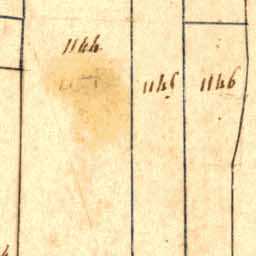 1144
1145
1146